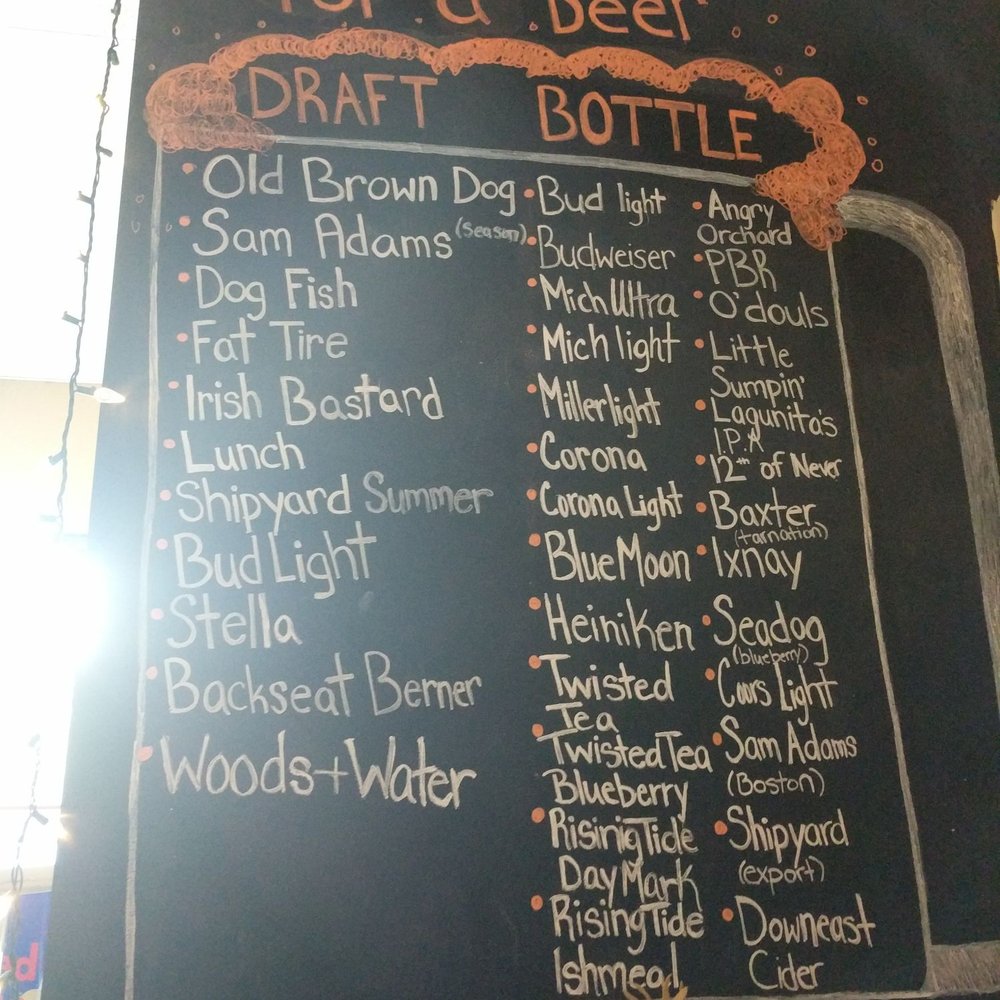 for a Beer
DRAFT BOTTLE
Old Brown Dog
Sam Adams (season)
Dog Fish
Fat Tire
Irish Bastard
Lunch
Shipyard Summer
Bud Light
Stella
Backseat Berner
Woods + Water
Bud light
Budweiser
Mich Ultra
Mich light
Millerlight
Corona
Corona Light
Blue Moon
Heiniken
Twisted
Tea
Twisted Tea
Blueberry
Rising Tide
Day Mark
Rising Tide
Ishmead
Angry
Orchard
PBR
O'douls
Little
Sumpin'
Lagunita's
I.P.A
12th of Never
Baxter
(tarnation)
Ixnay
Seadog
(blueberry)
Coors Light
Sam Adams
(Boston)
Shipyard
(export)
Downeast
Cider